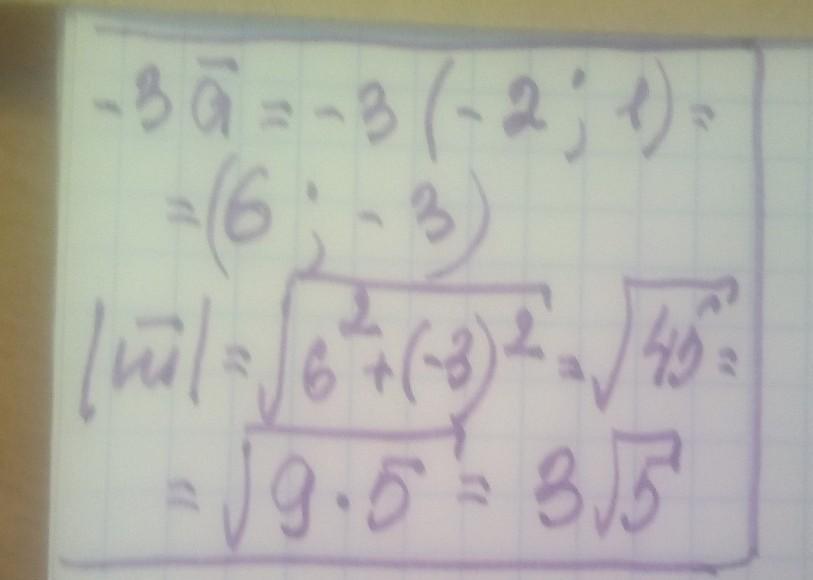 -3 a̅ = -3 (-2 ; 1) =
= (6 ; -3)
|m̅| = √(6² + (-3)²) = √45 =
= √(9 · 5) = 3√5